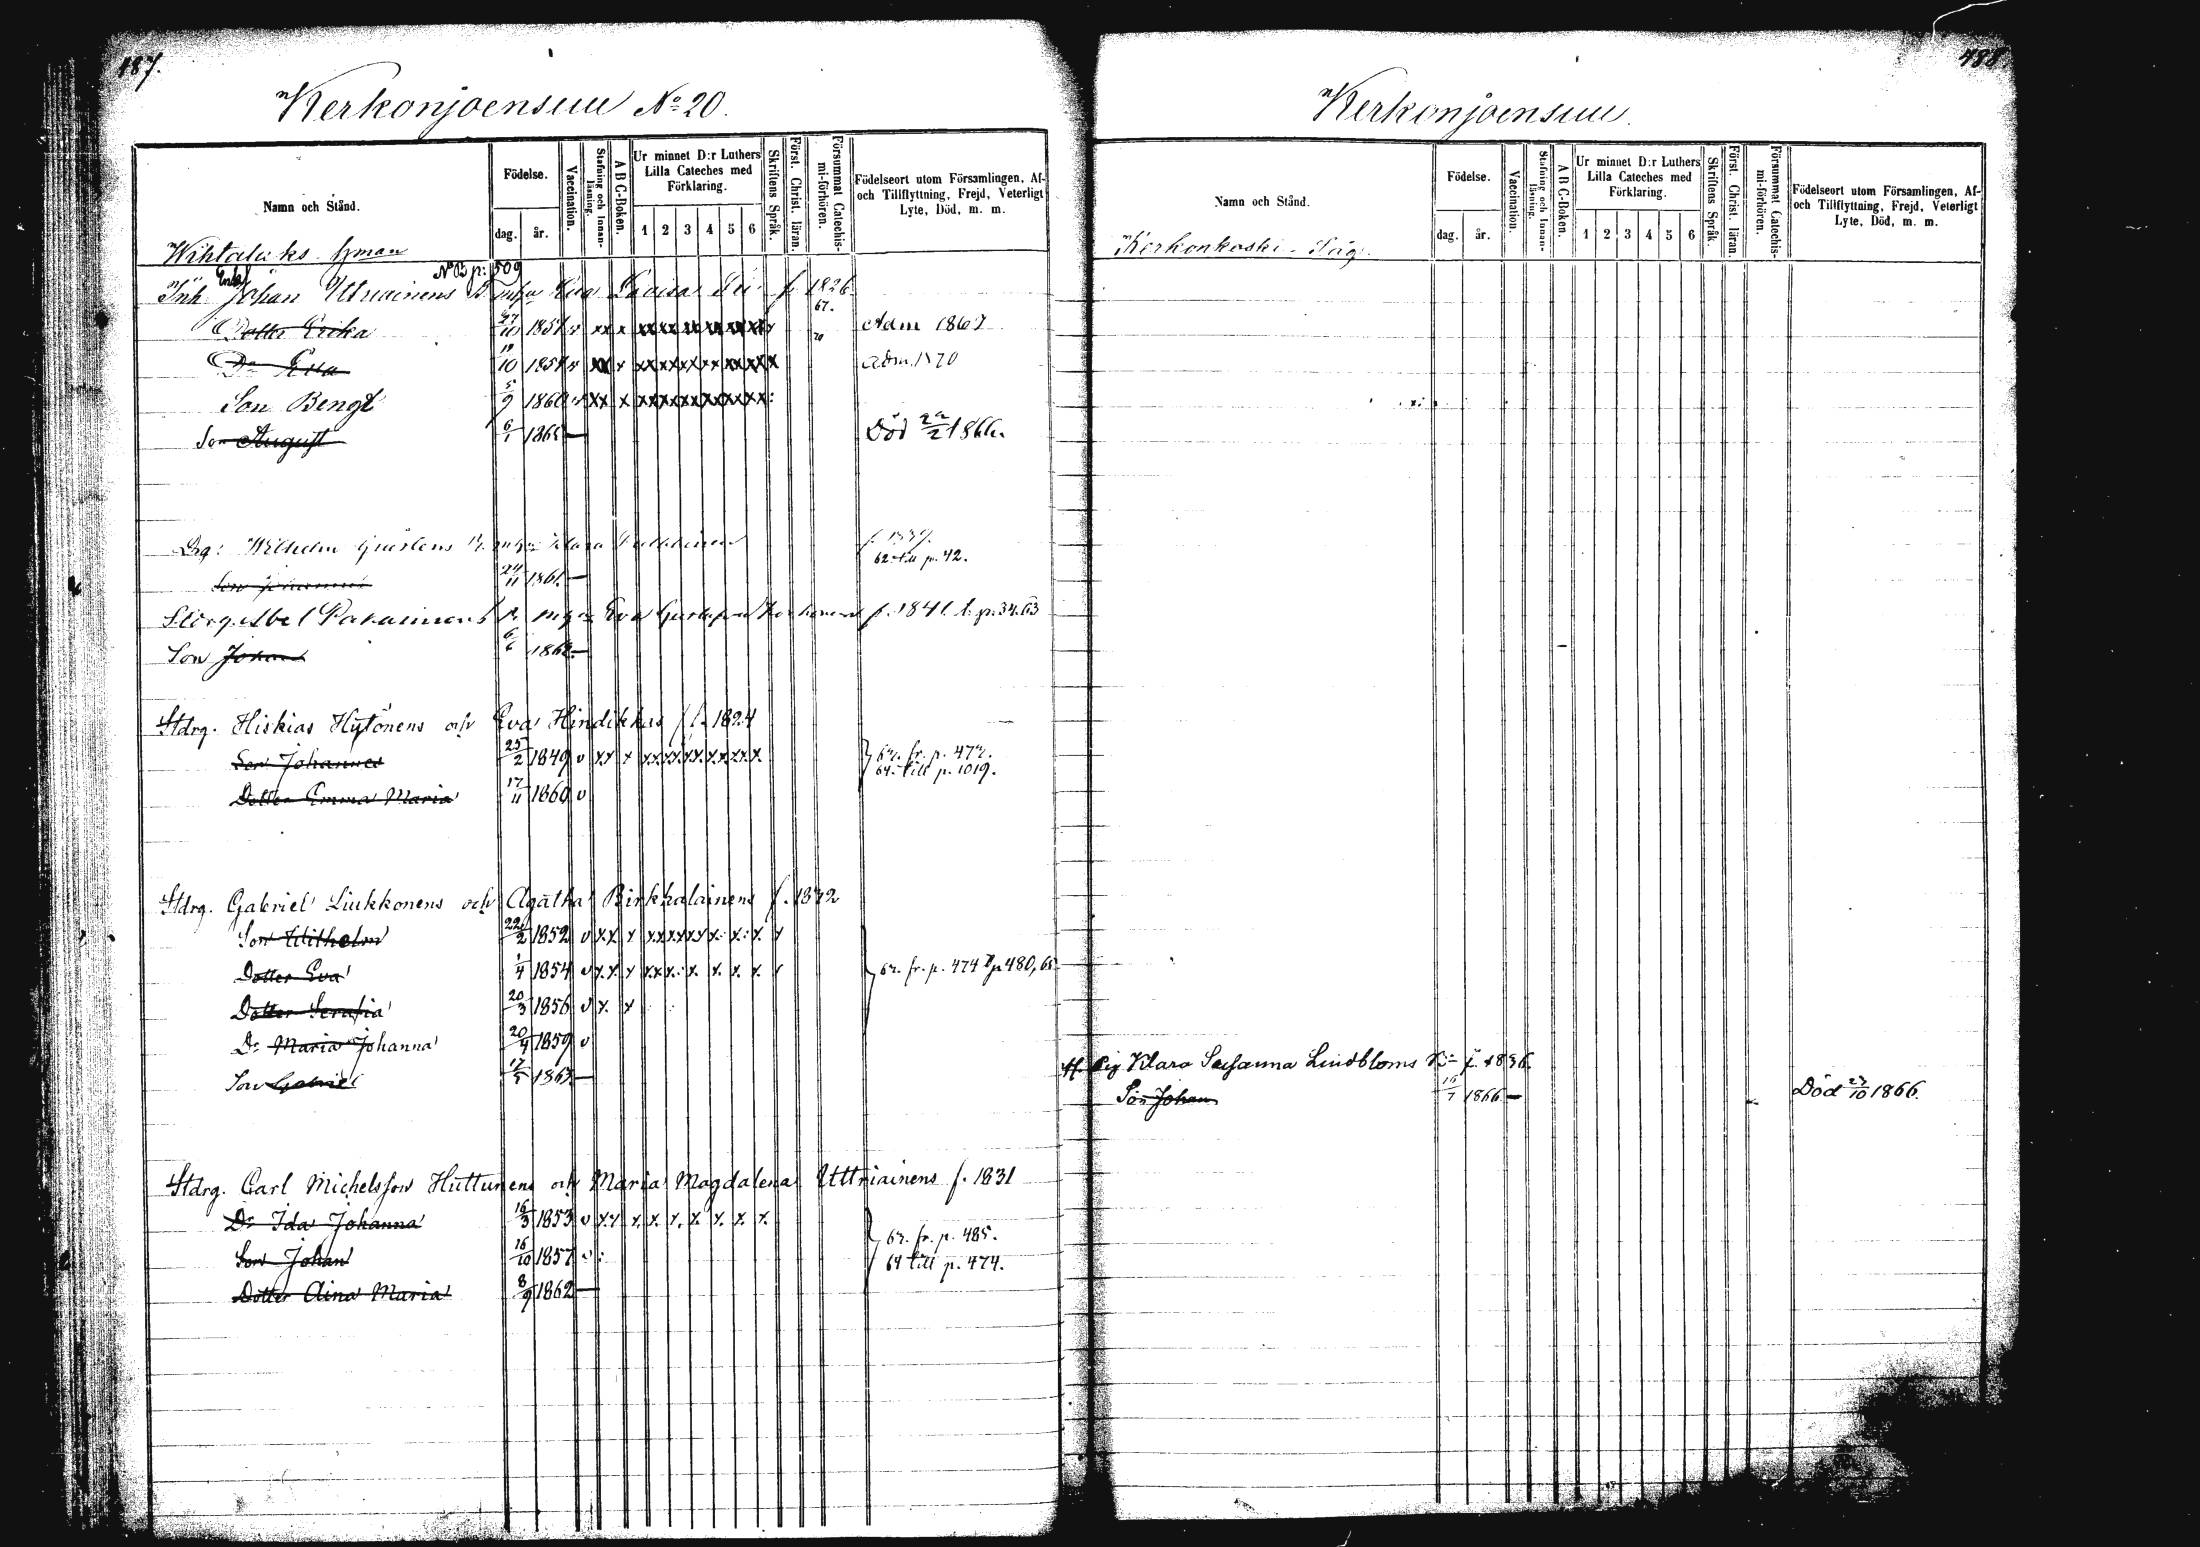 487.
Kerkonjoensuu No 20.
Namn och Stånd.
Födelse.
dag. år.
Vaccination.
Stafning och Innan-läsning.
A B C-Boken.
Ur minnet D:r Luthers Lilla Cateches med Förklaring.
1 2 3 4 5 6
Skriftens Språk.
Först. Christ. läran.
Försummat Catechis-mi-förhören.
Födelseort utom Församlingen, Af- och Tillflyttning, Frejd, Veterligt Lyte, Död, m. m.
p. 509
Inh. Enkl. Johan Uttriainens Lovisa f. 1826
67.
Dotter Erika 27/10 1851 v xx x xx xx xx xx xx xx Adm 1867
70
Dr 10 1854 v xx x xx xx xx xx xx xx x Adm. 1870
Son Bengt 5/9 1860 v xx x xx xx xx xx xx xx
Son August 6/1 1865 — Död 22/2 1866.
Wilhelm
62 till p. 42.
24/11 1861 —
Abel Eva f. 1841 t. p. 34. 63
Son Johan 6/6 1862 —
Stdrg. Hiskias Hytönens och Eva Hindikkas f. 1824
Son Johannes 25/2 1849 v x.x x x.x x.x x.x x.x x.x x. 62. fr. p. 474.
64. till p. 1019.
Dotter Emma Maria 17/11 1860 v
Stdrg. Gabriel Liukkonens och Agatha Birkkalainens f. 1822
Son Wilhelm 22/2 1852 v x.x x x.x x.x x.x x. x. x. x
Dotter Eva 1/4 1854 v x.x x x.x x. x. x. x. x. x 62. fr. p. 474 p 480, 65
Dotter Serafia 20/3 1856 v x. x
Dr Maria Johanna 20/4 1859 v
Son Gabriel 17/5 1863 —
Stdrg. Carl Michelsson Huttunens och Maria Magdalena Uttriainens f. 1831
Dr Ida Johanna 16/3 1853 v x.x x. x. x. x. x. x. x. 62. fr. p. 485.
Son Johan 16/10 1857 v : 64 till p. 474.
Dotter Aina Maria 8/9 1862 —
488
Kerkonjoensuu.
Namn och Stånd.
Födelse.
dag. år.
Vaccination.
Stafning och Innan-läsning.
A B C-Boken.
Ur minnet D:r Luthers Lilla Cateches med Förklaring.
1 2 3 4 5 6
Skriftens Språk.
Först. Christ. läran.
Försummat Catechis-mi-förhören.
Födelseort utom Församlingen, Af- och Tillflyttning, Frejd, Veterligt Lyte, Död, m. m.
Kerkonkoski Såg.
Pig Klara Susanna Lindbloms f. 1836.
Son Johan 16/7 1866 — Död 27/10 1866.